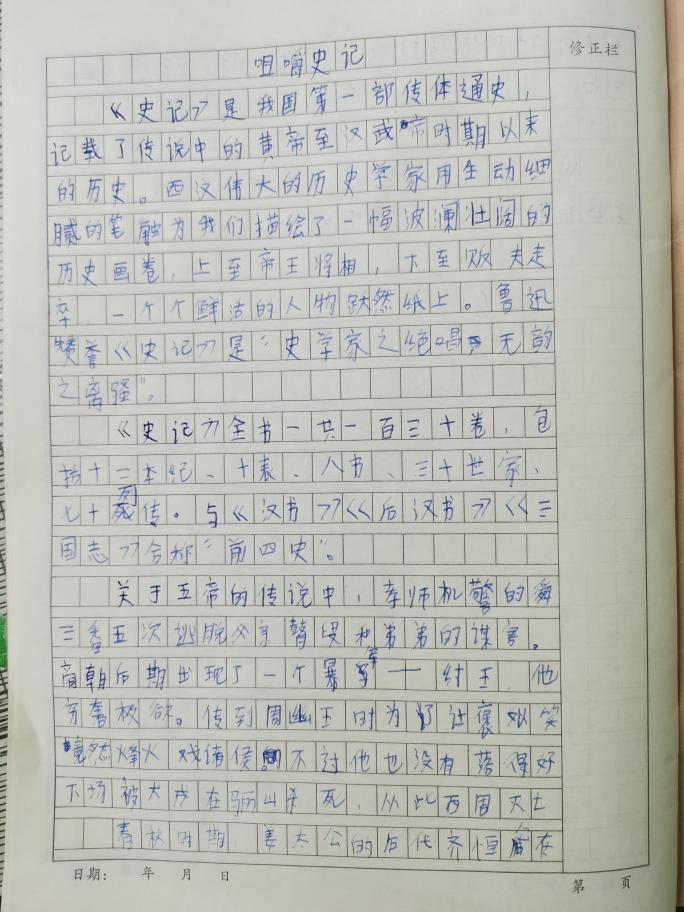 咀嚼史记
修正栏
《史记》是我国第一部传体通史，
记载了传说中的黄帝至汉武帝时期以来
的历史。西汉伟大的历史学家用生动细
腻的笔触为我们描绘了一幅波澜壮阔的
历史画卷，上至帝王将相，下至贩夫走
卒 一个个鲜活的人物跃然纸上。鲁迅
赞誉《史记》是“史学家之绝唱，无韵
之离骚”。
《史记》全书一共一百三十卷，包
括十二本纪、十表、八书、三十世家、
七十列传。与《汉书》《后汉书》《三
国志》合称“前四史”。
关于五帝的传说中，机警的舜
三番五次逃脱父亲瞽叟和弟弟的谋害。
商朝后期出现了一个暴君——纣王，他
穷奢极欲。传到周幽王时为了让褒姒笑
竟然烽火戏诸侯。不过他也没有落得好
下场被犬戎在骊山杀死，从此西周灭亡
春秋时期 姜太公的后代齐恒 在
日期： 年 月 日
第 页